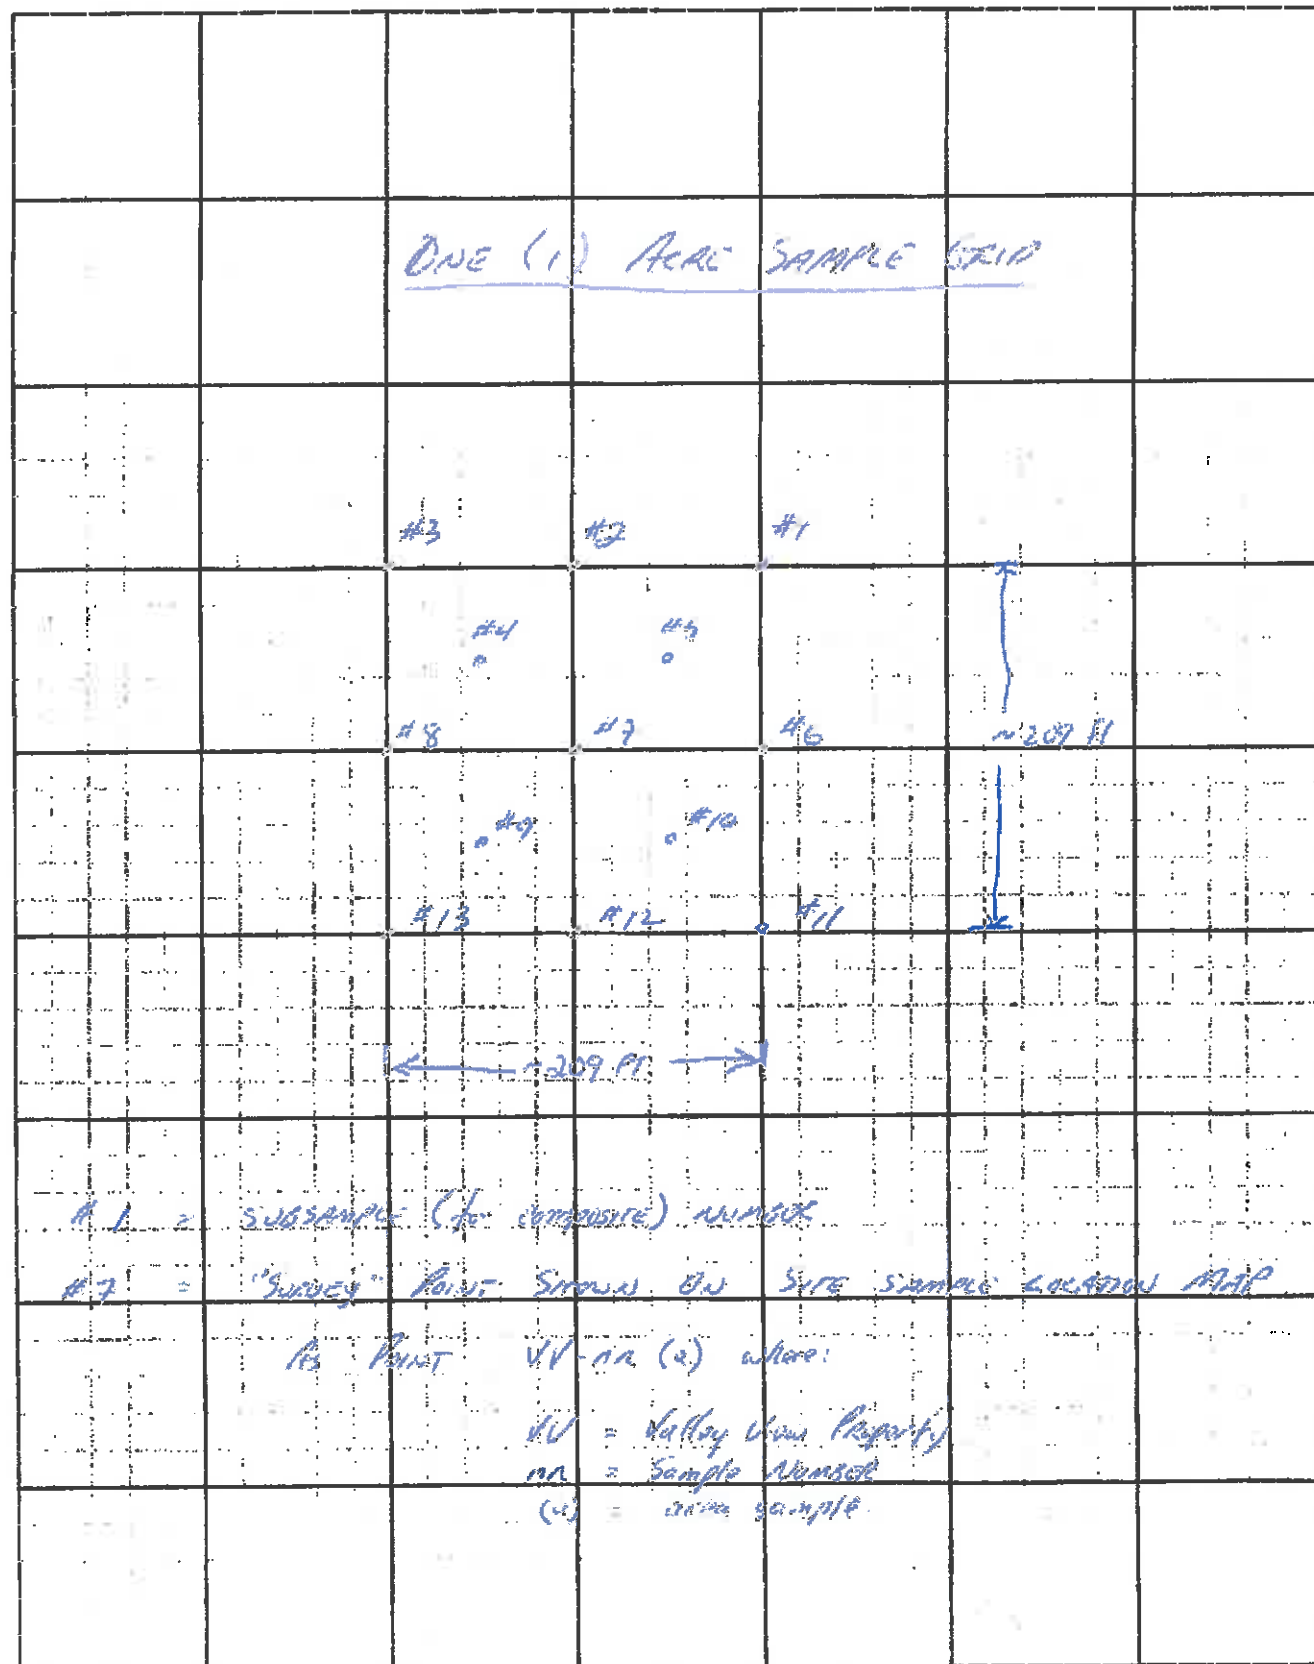 ONE (1) ACRE SAMPLE GRID
#3 #2 #1
#4 #5
#8 #7 #6 ~209 Ft
#9 #10
#13 #12 #11
~209 FT
#1 = SUBSAMPLE (for composite) NUMBER
#7 = "SURVEY" POINT SHOWN ON SITE SAMPLE LOCATION MAP
AS POINT VV-nn (a) where:
VV = Valley View Property
nn = Sample Number
(a) = area sample